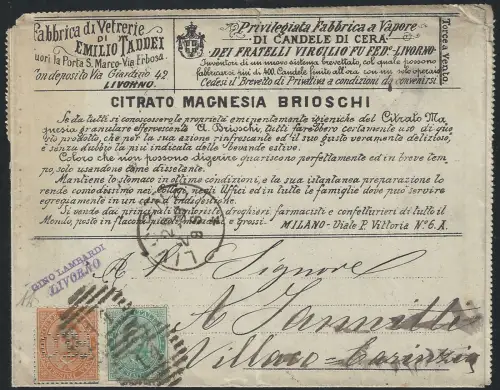 Fabbrica di Vetrerie
DI
EMILIO TADDEI
fuori la Porta S. Marco-Via Erbosa
Con deposito Via Giardino 42
LIVORNO.
Privilegiata Fabbrica a Vapore
DI CANDELE DI CERA
DEI FRATELLI VIRGILIO FU FEDe - LIVORNO
Inventori di un nuovo sistema brevettato, col quale possono
fabbricarsi più di 400. Candele finite all'ora con un solo operaio
Cedesi il Brevetto di Privativa a condizioni da convenirsi.
Torce a Vento.
CITRATO MAGNESIA BRIOSCHI
Se da tutti si conoscessero le proprietà eminentemente igieniche del Citrato Ma_
gnesia granulare effervescente A. Brioschi, tutti farebbero certamente uso di que
sto prodotto, che per la sua azione rinfrescante ed il suo gusto veramente delizioso,
è senza dubbio la più indicata delle bevande estive.
Coloro che non possono digerire guariscono perfettamente ed in breve tem_
po, solo usandone come dissetante.
Mantiene lo stomaco in ottime condizioni, e la sua istantanea preparazione lo
rende comodissimo nei negli Uffici ed in tutte le famiglie dove può servire
egregiamente in un caso d'indigestione.
Si vende dai principali droghieri farmacisti e confetturieri di tutto il
Mondo, posto in e grossi. MILANO-Viale P. Vittoria No. 6. A.
GINO LAMBARDI
LIVORNO
Signore
A
Villaco